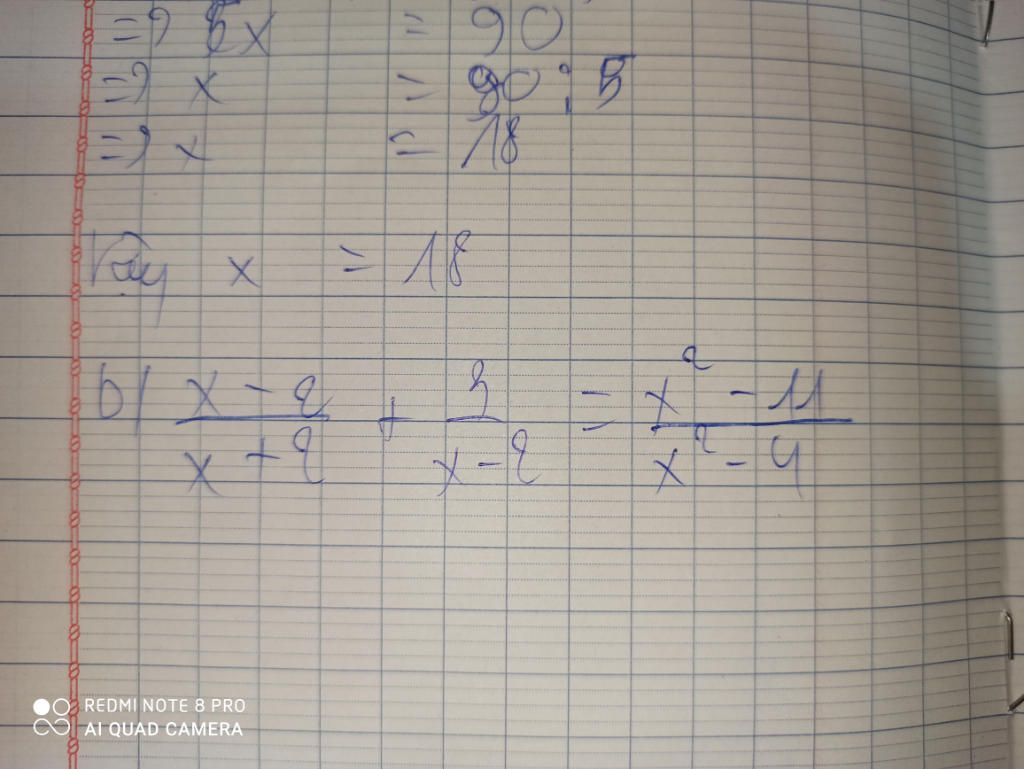 => 5x = 90
=> x = 90 : 5
=> x = 18
Vậy x = 18
b) (x - 2)/(x + 2) + 3/(x - 2) = (x² - 11)/(x² - 4)
REDMI NOTE 8 PRO
AI QUAD CAMERA